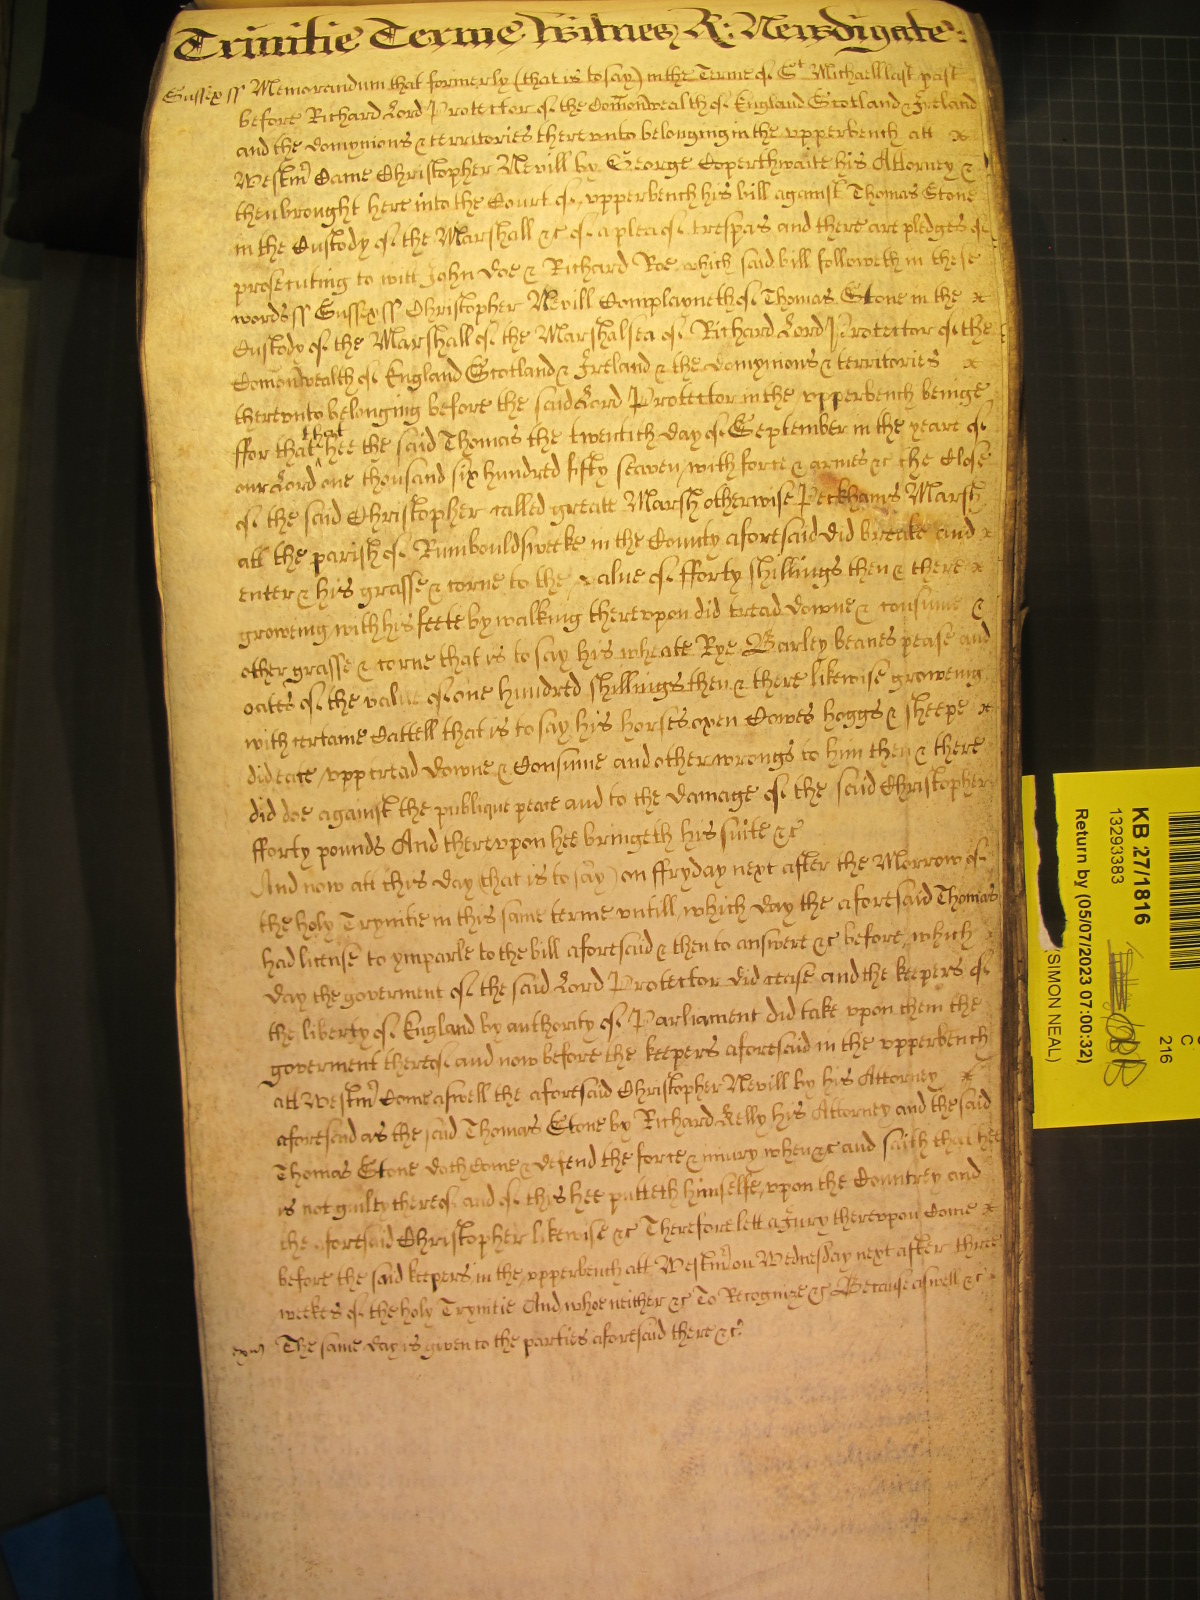 Trinitie Terme Witnes R: Newdigate:
Sussex ss Memorandum that formerly (that is to say) in the Terme of St Michaell last past
before Richard Lord Protector of the Comonwealth of England Scotland & Ireland
and the domynions & territories therevnto belonging in the vpperbench att
Westmr Came Christopher Nevill by George Coperthwaite his Attorney &
then brought here into the Court of vpperbench his bill against Thomas Stone
in the Custody of the Marshall &c of a plea of trespas and there are pledges of
prosecuting to witt John Doe & Richard Roe which said bill followeth in these
words ss Sussex ss Christopher Nevill Complayneth of Thomas Stone in the
Custody of the Marshall of the Marshalsea of Richard Lord Protector of the
Comonwealth of England Scotland & Ireland & the domynions & territories
therevnto belonging before the said Lord Protector in the vpperbench beinge
ffor that that hee the said Thomas the twentith day of September in the yeare of
our Lord one thousand six hundred fifty seaven with force & armes &c the Close
of the said Christopher called greate Marsh otherwise Peckhams Marsh
att the parish of Rumbouldsweeke in the County aforesaid did breake and
enter & his grasse & corne to the value of fforty shillings then & there
groweing with his feete by walking therevpon did tread downe & consume &
other grasse & corne that is to say his wheate Rye Barley beanes pease and
oates of the value of one hundred shillings then & there likewise groweing
with certaine Cattell that is to say his horses oxen Cowes hoggs & sheepe
did eate vpp tread downe & Consume and other wrongs to him then & there
did doe against the publique peace and to the damage of the said Christopher
fforty pounds And therevpon hee bringeth his suite &c
And now att this day (that is to say) on ffryday next after the Morrow of
the holy Trynitie in this same terme vntill which day the aforesaid Thomas
had license to ymparle to the bill aforesaid & then to answere &c before which
day the goverment of the said Lord Protector did cease and the keepers of
the liberty of England by authority of Parliament did take vpon them the
goverment thereof and now before the keepers aforesaid in the vpperbench
att Westmr Come aswell the aforesaid Christopher Nevill by his Attorney
aforesaid as the said Thomas Stone by Richard Kelly his Attorney and the said
Thomas Stone doth Come & defend the force & iniury when &c and saith that hee
is not guilty thereof and of this hee putteth himselfe vpon the Countrey and
the aforesaid Christopher likewise &c Therefore lett a Jury therevpon Come
before the said keepers in the vpperbench att Westmr on Wednesday next after three
weekes of the holy Trynitie And whoe neither &c To Recognize &c Because aswell &c
The same day is given to the parties aforesaid there &c
KB 27/1816
13293383
Return by (05/07/2023 07:00:32)
(SIMON NEAL)
C
216